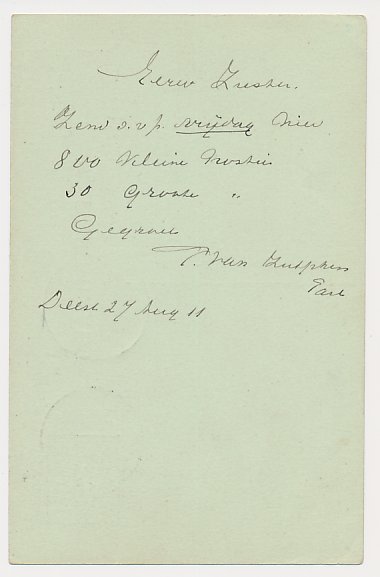 Eerw Zuster.
Zend s.v.p. vrijdag hier
800 kleine hostie
30 Groote "
Gegroet
van Zutphen
Past
Deest 27 Aug 11